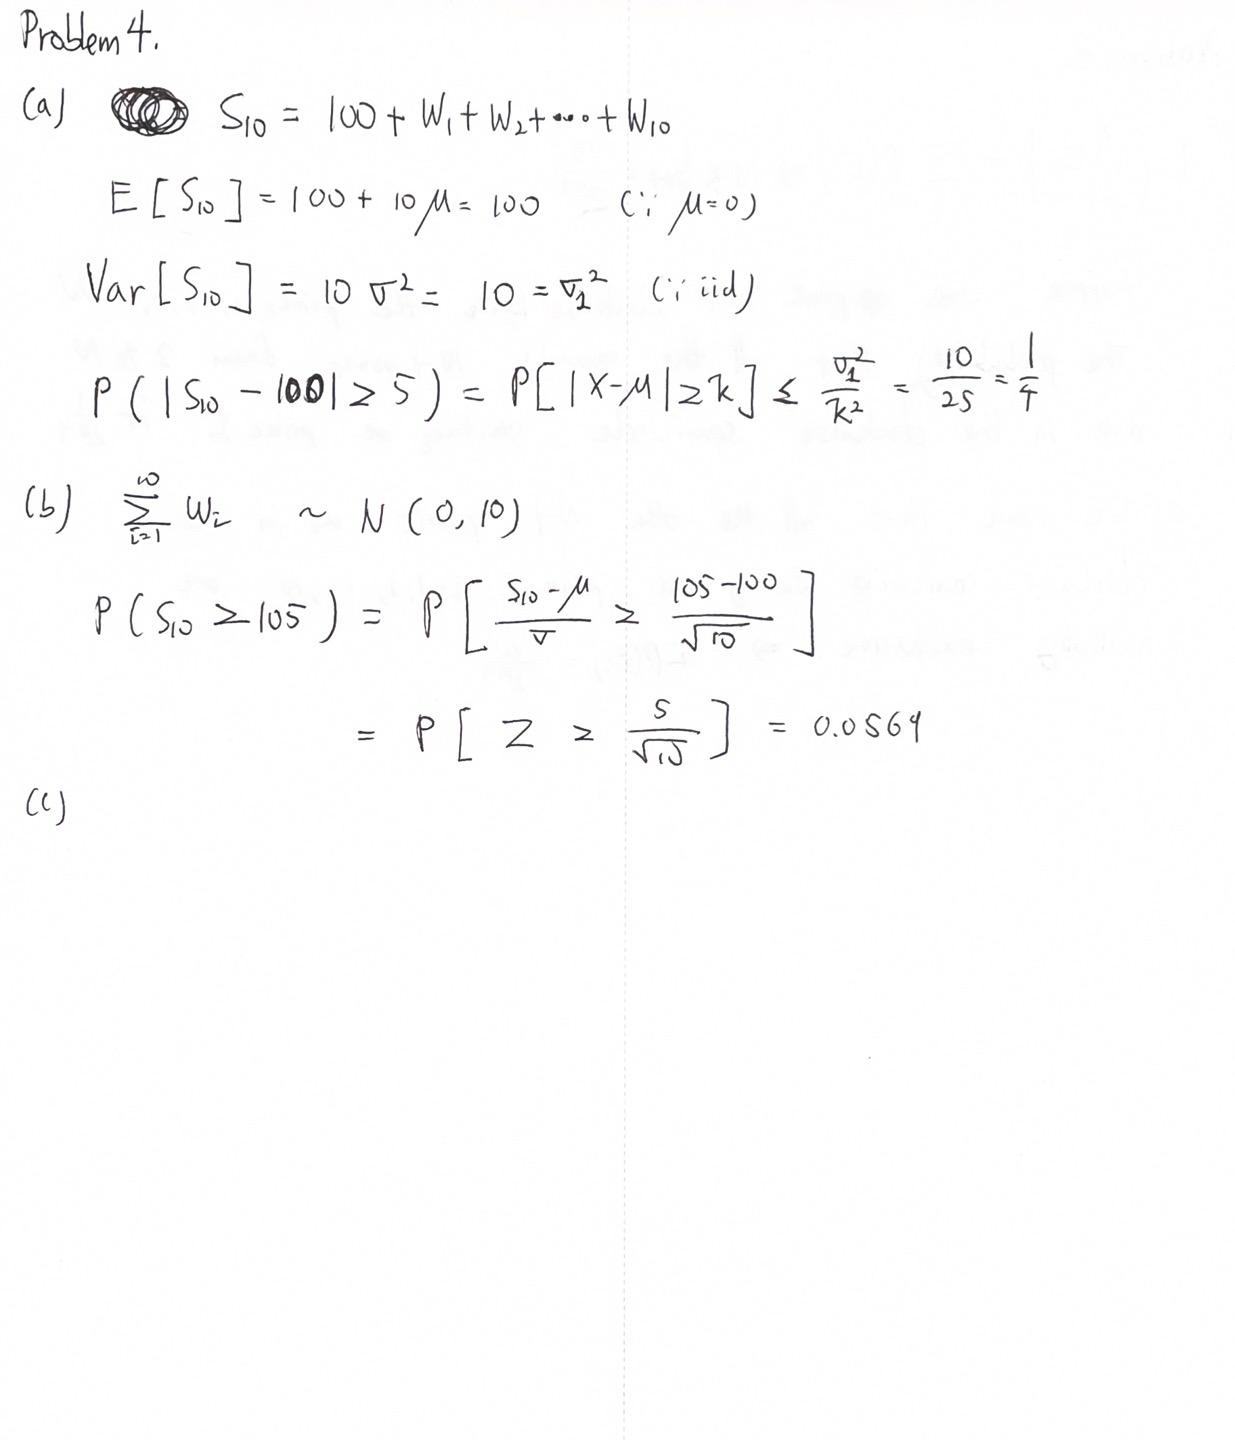 Problem 4.
(a) S₁₀ = 100 + W₁ + W₂ + ... + W₁₀
E[S₁₀] = 100 + 10μ = 100 (∵ μ=0)
Var[S₁₀] = 10σ² = 10 = σ₁² (∵ iid)
P(|S₁₀ - 100| ≥ 5) = P[|X-μ| ≥ k] ≤ σ₁²/k² = 10/25 = 1/4
(b) ∑_{i=1}^{10} Wᵢ ~ N(0, 10)
P(S₁₀ ≥ 105) = P[(S₁₀-μ)/σ ≥ (105-100)/√10]
= P[Z ≥ 5/√10] = 0.0569
(c)